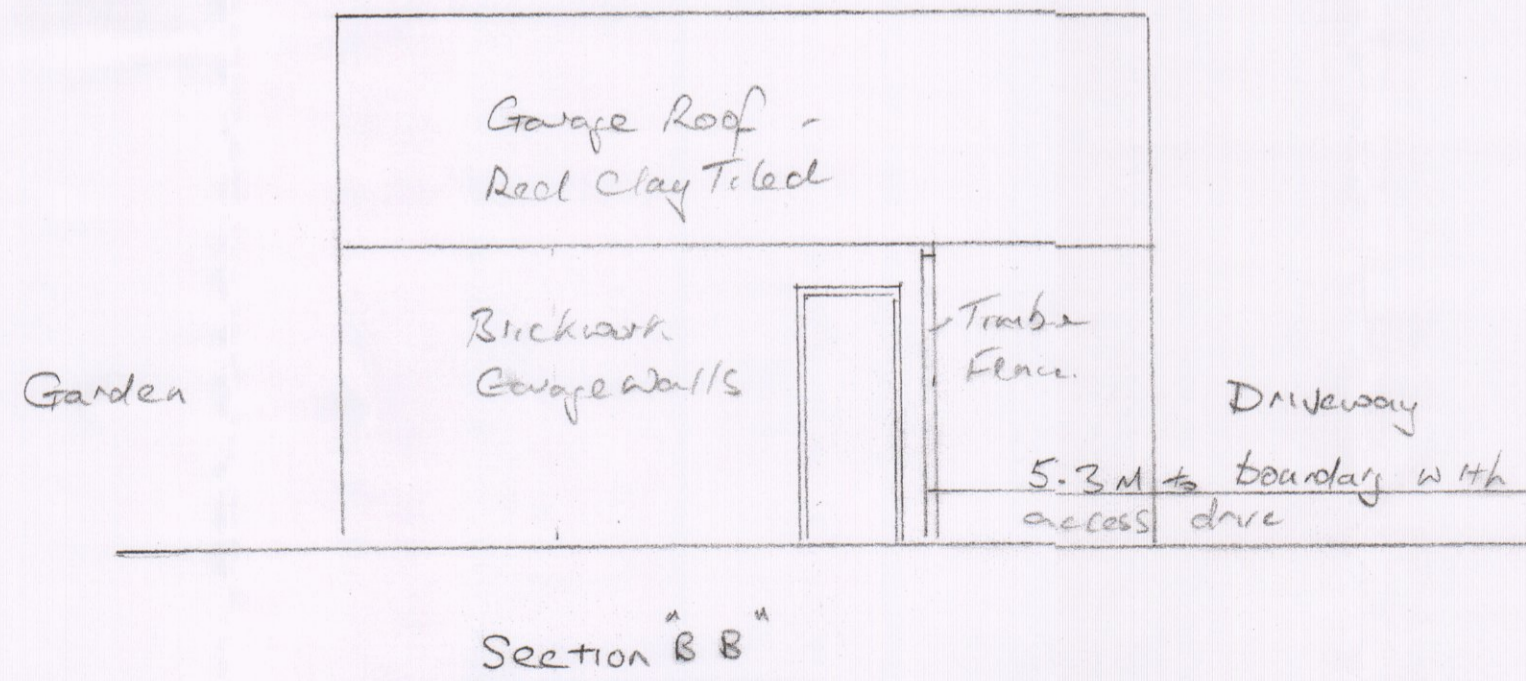 Garage Roof -
Red Clay Tiled
Brickwork
Garage Walls
Timber
Fence.
Garden
Driveway
5.3M to boundary with
access drive
Section "B B"